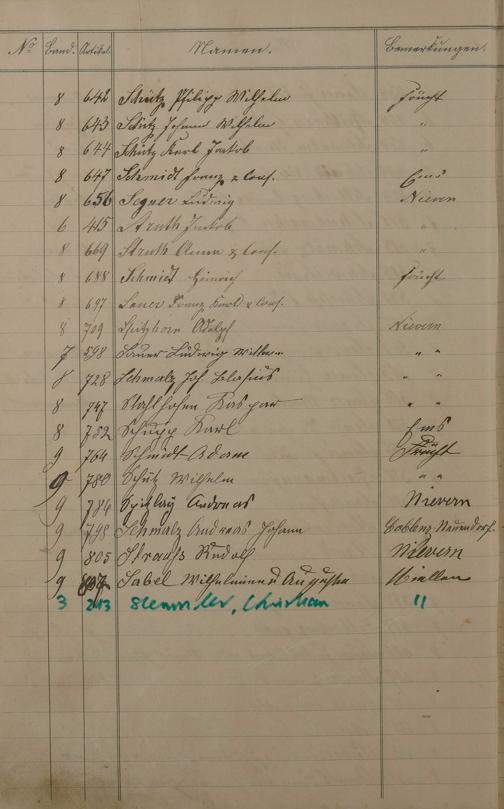 No Band. Artikel. Namen. Bemerkungen.
8 642 Schütz Philipp Wilhelm Frücht
8 643 Schütz Johann Wilhelm "
8 644 Schütz Karl Jakob "
8 647 Schmidt Franz & Cons. Ems
8 656 Segner Ludwig Nievern
6 445 Struth Jakob " "
8 669 Struth Anna & Cons. "
8 688 Schmidt Heinrich Frücht
8 697 Franz Karl & Cons.
8 709 Spitzhorn Adolph Nievern
7 598 Sauer Ludwig Wittwe " "
8 728 Schmalz Joh. Blasius " "
8 747 Stahlhofen Kaspar " "
8 752 Schupp Karl Ems
9 764 Schmidt Adam Frücht
9 780 Schütz Wilhelm " "
9 786 Spitzlay Andreas Nievern
9 798 Schmalz Andreas Johann Coblenz Neuendorf.
9 805 Strauß Rudolf Nievern
9 807 Sabel Wilhelmine u Auguste Miellen
3 213 Christian "